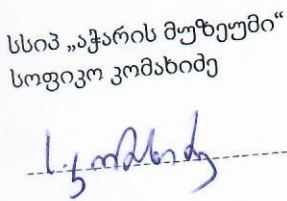 სსიპ „აჭარის მუზეუმი“
სოფიკო კომახიძე